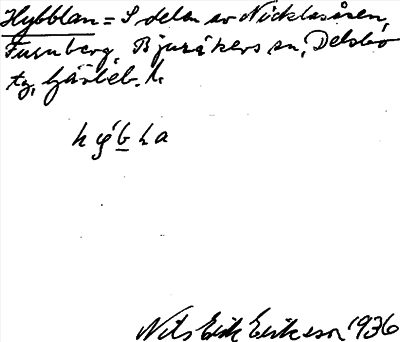 Hybblan = S delen av Nicklasåsen,
Furuberg, Bjuråkers sn, Delsbo
tg, Gävleb. l.
hýbla
Nils Erik Eriksson 1936